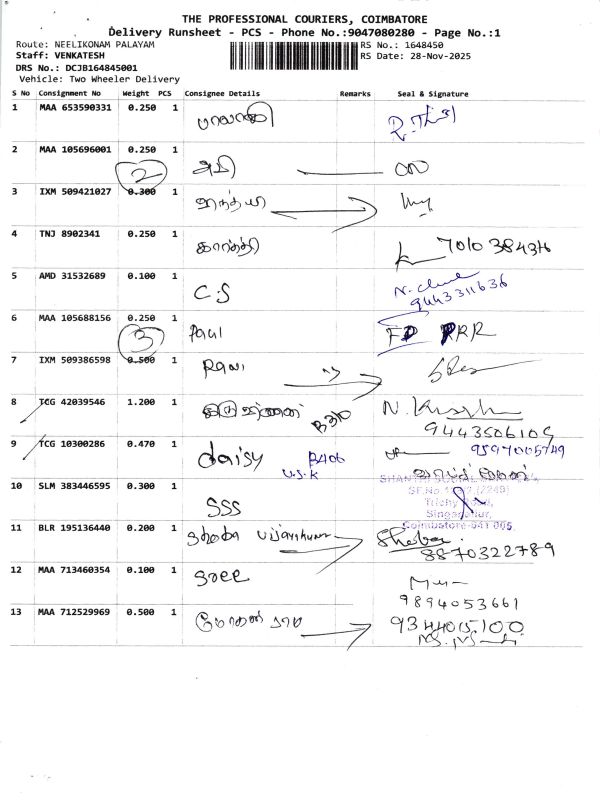 THE PROFESSIONAL COURIERS, COIMBATORE
Delivery Runsheet - PCS - Phone No.:9047080280 - Page No.:1
Route: NEELIKONAM PALAYAM RS No.: 1648450
Staff: VENKATESH RS Date: 28-Nov-2025
DRS No.: DCJB164845001
Vehicle: Two Wheeler Delivery
S No Consignment No Weight PCS Consignee Details Remarks Seal & Signature
1 MAA 653590331 0.250 1 பாலாஜி
2 MAA 105696001 0.250 1
2
3 IXM 509421027 0.300 1
4 TNJ 8902341 0.250 1 கார்த்தி 7010384316
5 AMD 31532689 0.100 1 C.S
9443311636
6 MAA 105688156 0.250 1 Paul
3
7 IXM 509386598 0.500 1 Rani
8 TCG 42039546 1.200 1 B310
9443506109
9 TCG 10300286 0.470 1 daisy B406 9597005749
U.S.K
10 SLM 383446595 0.300 1 SSS
Trichy Road,
Singanallur,
Coimbatore-641 005.
11 BLR 195136440 0.200 1 Shoba Vijayakumar Shoba
8870322789
12 MAA 713460354 0.100 1 Sree
9894053661
13 MAA 712529969 0.500 1 மோகன் ராம் 9344015100